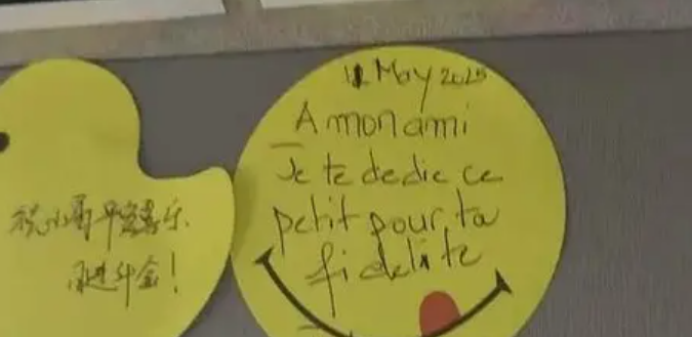 祝小哥平安喜乐
日进斗金!
12 May 2025
A mon ami
Je te dedie ce
petit pour ta
fidelite